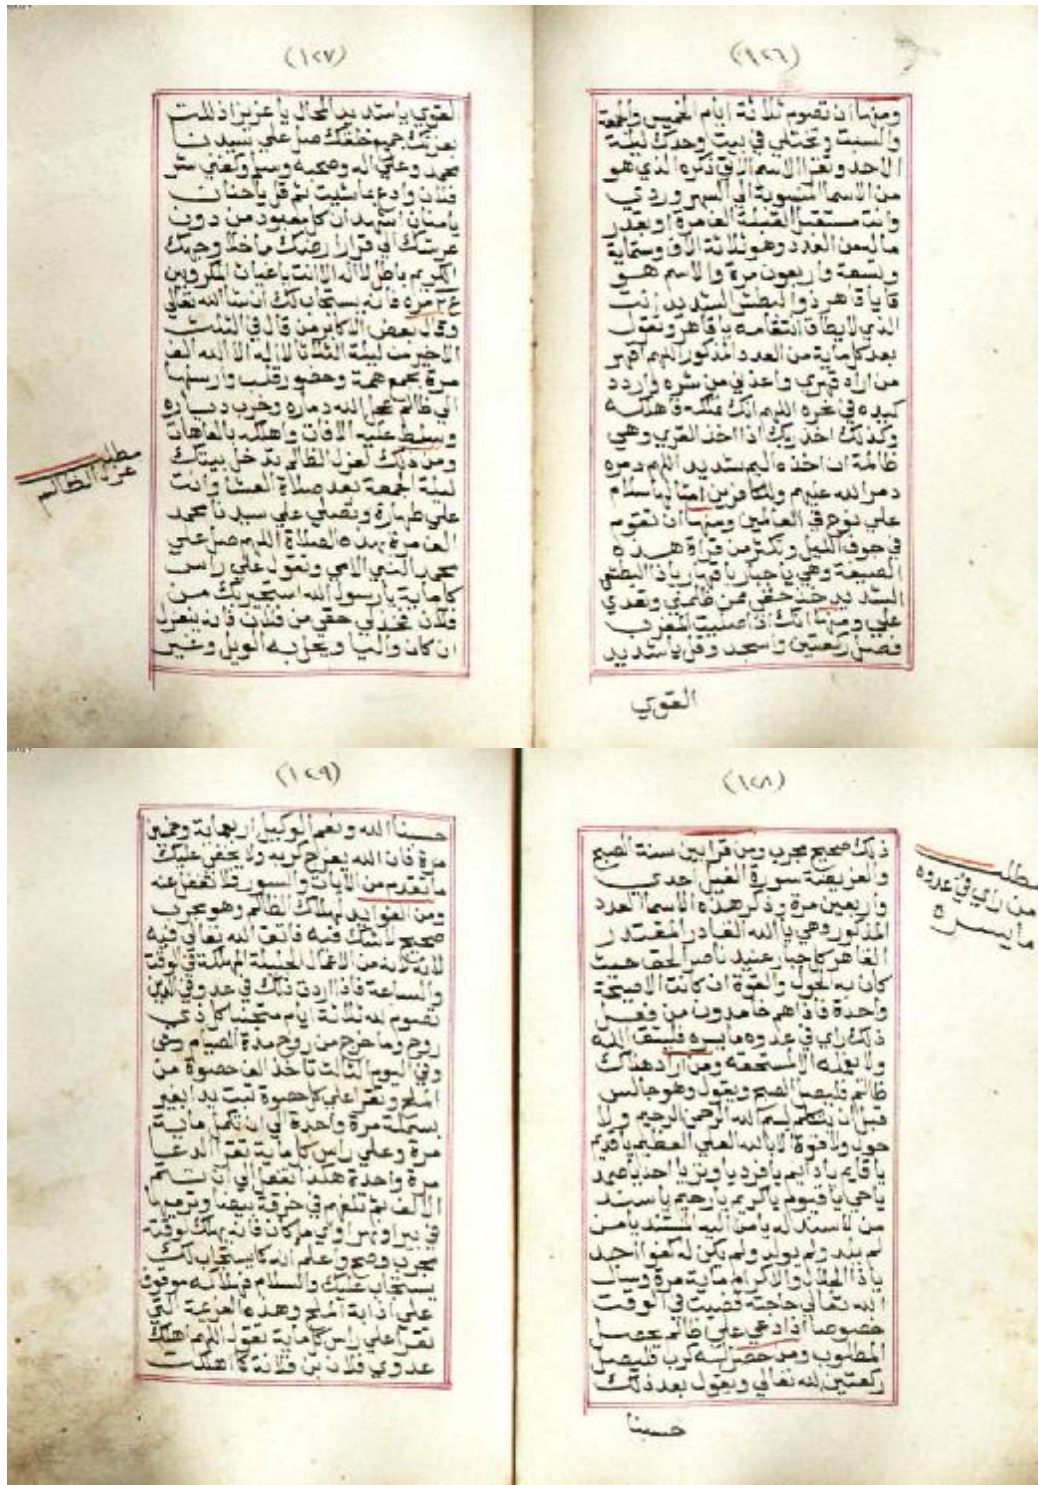 (١٢٦)
ومنها ان تصوم ثلاثة ايام الخميس والجمعة
والسبت وتختلي في بيت وحدك ليلة
الاحد وتقرا الاسم الاتي ذكره الذي هو
من الاسما المنسوبة الي السهروردي
وانت مستقبل القبلة العامرة او بقدر
ماليسن العدد وهو ثلاثة الاف وستماية
وتسعة واربعون مرة والاسم هو
يا قاهر ذو البطش الشديد انت
الذي لا يطاق انتقامه يا قاهر وتقول
بعد كل ماية من العدد المذكور اللهم اقهر
من اراد قهري واعذني من شره واردد
كيده في نحره اللهم انك تملكه فاهلكه
وكذلك اخذ ربك اذا اخذ القري وهي
ظالمة ان اخذه اليم شديد اللهم دمره
دمر الله عليهم وللكافرين امثالها سلام
علي نوح في العالمين ومنها ان تقوم
في جوف الليل وتكثر من قراة هذه
الصيغة وهي يا جبار يا قهار يا ذا البطش
الشديد خذ حقي ممن ظلمني وتعدي
علي ومنها انك اذا صليت المغرب
فصل ركعتين واسجد وقل يا شديد
القوي
(١٢٧)
القوي يا شديد المحال يا عزيز اذللت
بعزتك جميع خلقك صل علي سيدنا
محمد وعلي اله وصحبه وسلم واكفني شر
فلان وادع بما شيت ثم قل يا حنان
يا منان اشهد ان كل معبود من دون
عرشك الي قرار ارضك ما خلا وجهك
الكريم باطل لا اله الا انت يا غياث المكروبين
مرة فانه يستجاب لك ان شا الله تعالي
وقال بعض الاكابر من قال في الثلث
الاخير من ليلة الثلاثا لا اله الا الله الف
مرة بجمع همة وحضور قلب وارسلها
الي ظالم عجل الله دماره وخرب دياره
وسلط عليه الافات واهلكه بالعاهات
ومن ذلك لعزل الظالم تدخل بيتك
ليلة الجمعة بعد صلاة العشا وانت
علي طهارة وتصلي علي سيدنا محمد
الف مرة بهذه الصلاة اللهم صل علي
محمد النبي الامي وتقول علي راس
كل ماية يا رسول الله استجيرتك من
فلان فخذ لي حقي من فلان فانه ينعزل
ان كان واليا ويحل به الويل وغير
مطلب
عزل الظالم
(١٢٨)
ذلك صحيح مجرب ومن قرا بين سنة الصبح
والفريضة سورة الفيل احدي
واربعين مرة وذكر هذه الاسما العدد
المذكور وهي يا الله القادر المقتدر
القاهر كل جبار عنيد ناصر الحق حيث
كان به الحول والقوة ان كانت الا صيحة
واحدة فاذا هم خامدون من فعل
ذلك راي في عدوه ما يسره فليتق الله
ولا يفعله الا لمستحقه ومن اراد هلاك
ظالم فليصل الصبح ويقول وهو جالس
قبل ان يتكلم بسم الله الرحمن الرحيم ولا
حول ولا قوة الا بالله العلي العظيم يا قديم
يا قايم يا دايم يا فرد يا وتر يا احد يا صمد
يا حي يا قيوم يا كريم يا رحيم يا سند
من لا سند له يا من اليه المستند يا من
لم يلد ولم يولد ولم يكن له كفوا احد
يا ذا الجلال والاكرام ماية مرة وسال
الله تعالي حاجته قضيت في الوقت
خصوصا اذا دعي علي ظالم يحصل
المطلوب ومن حصل له كرب فليصل
ركعتين لله تعالي ويقول بعد ذلك
حسبنا
مطلب
من راي في عدوه
ما يسره
(١٢٩)
حسبنا الله ونعم الوكيل اربعماية وخمسين
مرة فان الله يفرج كربه ولا يخفي عليك
ما تقدم من الايات والسور فلا تغفل عنه
ومن الفوايد لهلاك الظالم وهو مجرب
صحيح لا شك فيه فاتق الله تعالي فيه
لانه من الاعمال الجليلة المهلكة في الوقت
والساعة فاذا اردت ذلك في عدو في الدين
تصوم لله ثلاثة ايام متجنبا كل ذي
روح وما خرج من روح مدة الصيام
وفي اليوم الثالث تاخذ الف حصوة من
الملح وتقرا علي كل حصوة تبت يدا بغير
بسملة مرة واحدة الي ان تكمل ماية
مرة وعلي راس كل ماية تقرا الدعا
مرة واحدة هكذا تفعل الي ان تتم
الالف ثم تلفهم في خرقة بيضا وترميها
في بير او نهر او اي مكان فانه يهلك لوقته
مجرب وصح واعلم انه كما يستجاب لك
يستجاب عليك والسلام فهلاكه موقوف
علي اذابة الملح وهذه العزيمة التي
تقرا علي راس كل ماية تقول اللهم اهلك
عدوي فلان بن فلانة كما اهلكت